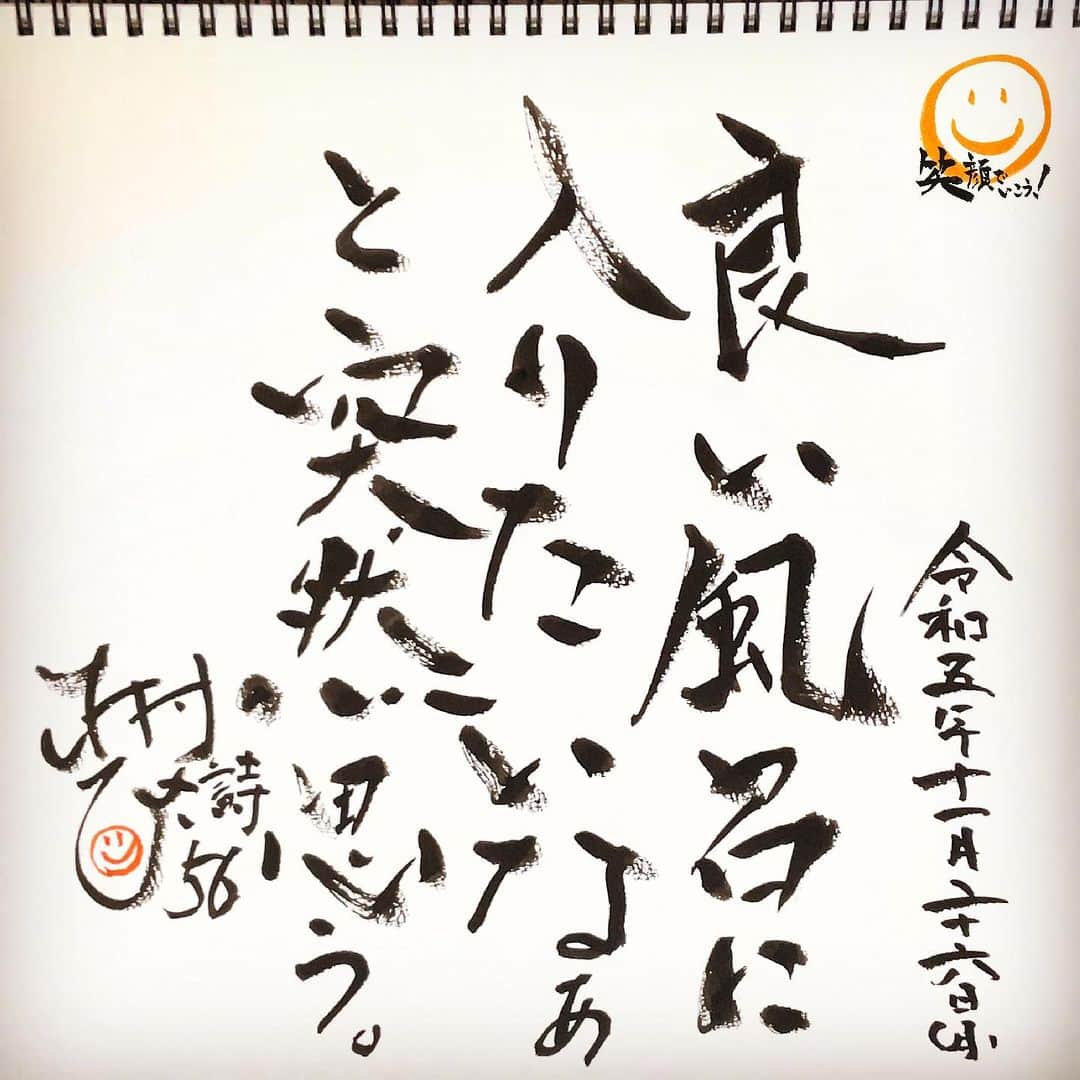 笑顔でいこう!
令和五年十一月二十六日
良い風呂に
入りたいなぁ
と突然思う。
木村ひさ詩56